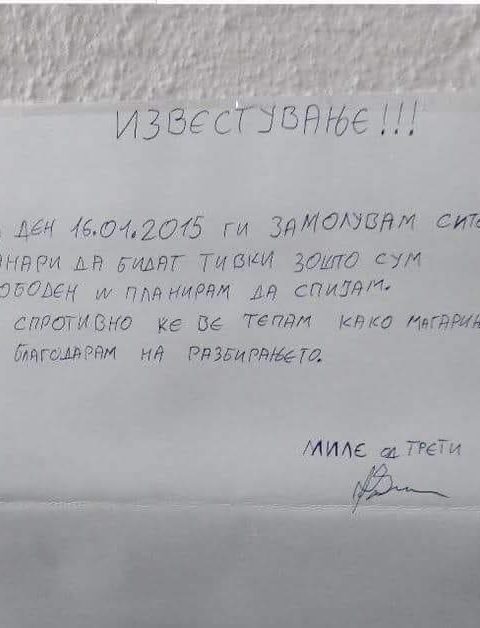 ИЗВЕСТУВАЊЕ!!!
ДЕН 16.01.2015 ГИ ЗАМОЛУВАМ СИТЕ
АНАРИ ДА БИДАТ ТИВКИ ЗОШТО СУМ
ОБОДЕН И ПЛАНИРАМ ДА СПИЈАМ.
СПРОТИВНО ЌЕ ВЕ ТЕПАМ КАКО МАГАРИЊ
БЛАГОДАРАМ НА РАЗБИРАЊЕТО.
МИЛЕ ОД ТРЕТИ